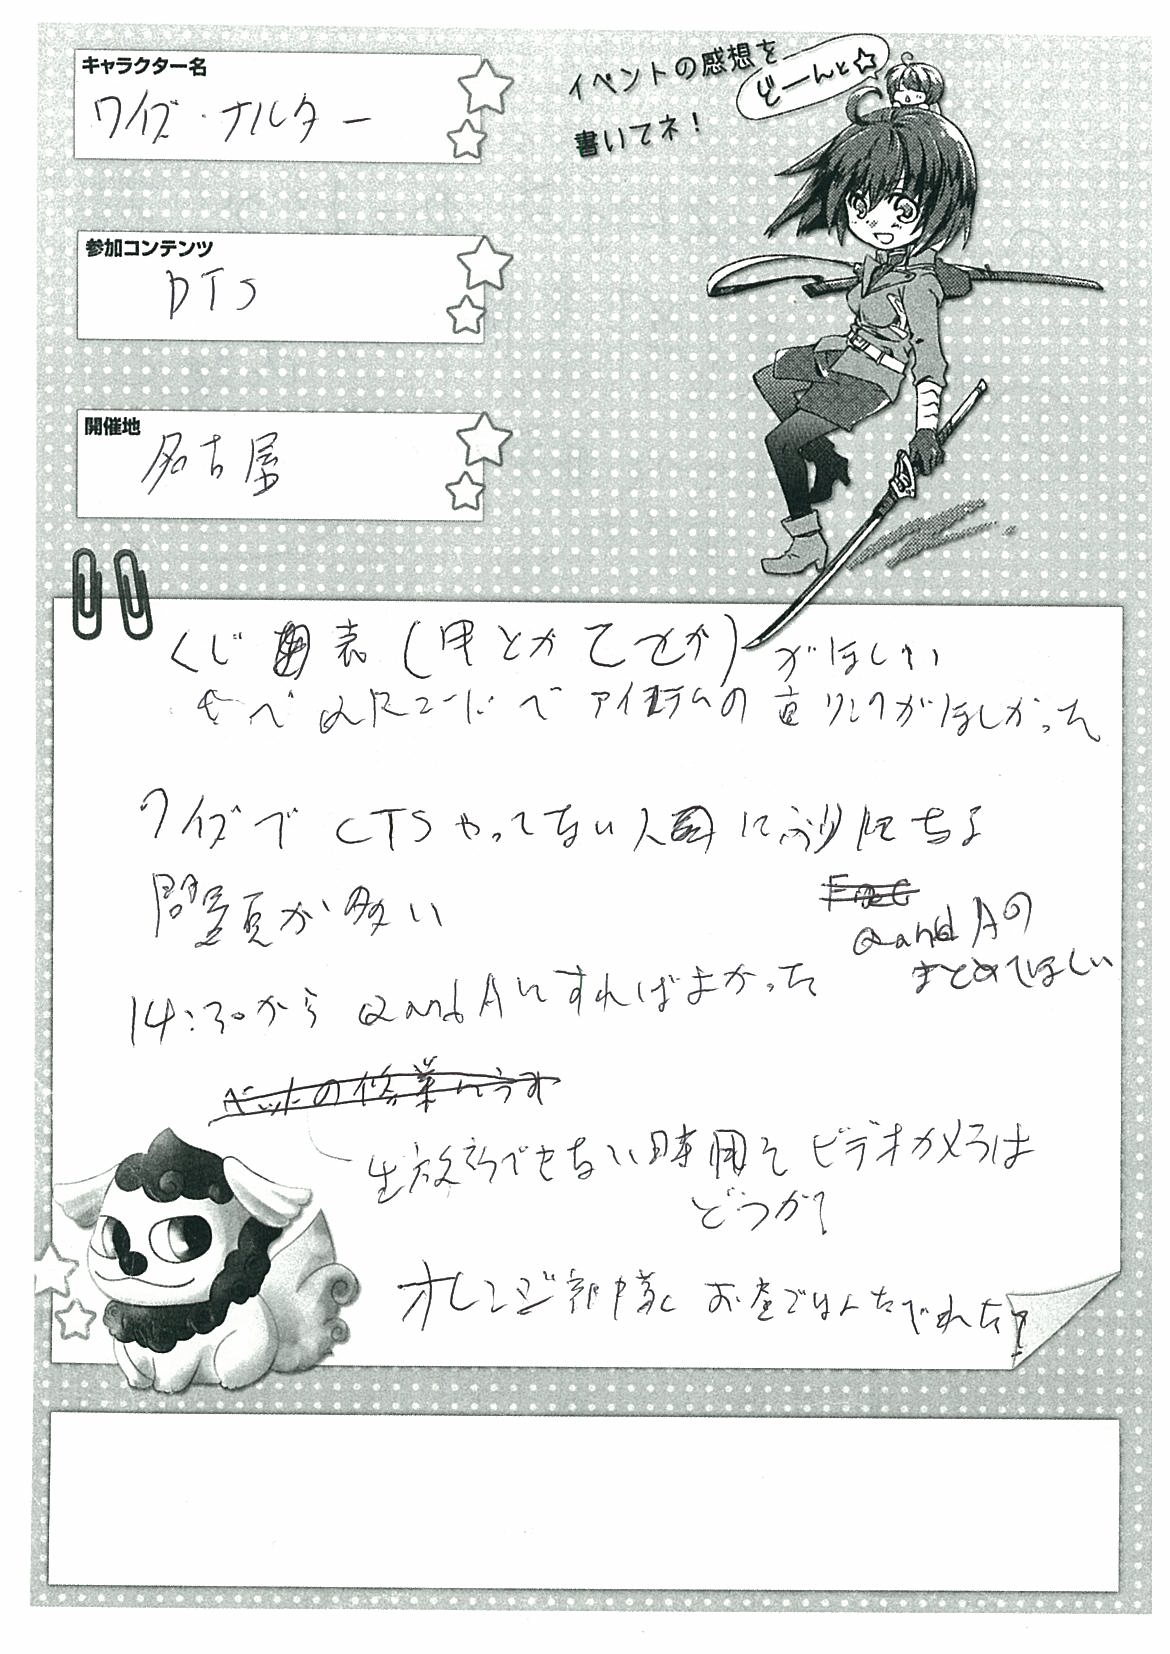 キャラクター名
ワイズ・ナルター
イベントの感想を
どーんと☆
書いてネ！
参加コンテンツ
DTS
開催地
名古屋
くじ 表（甲とか乙とか）がほしい
QRコードでアイテムの直リンクがほしかった
クイズで CTSやってない人 に
問題が多い
QandAの
まとめてほしい
14:30から QandAにすればよかった
ペットの修業
生放送できない時用にビデオカメラは
どうか？
オレンジ お堂で